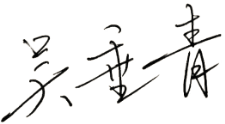 吴垂青